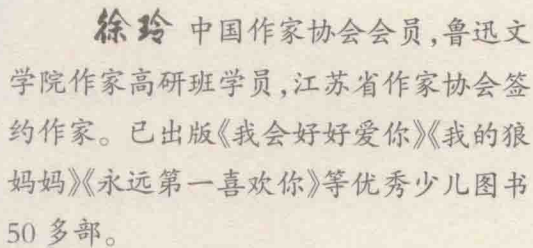 徐玲 中国作家协会会员,鲁迅文
学院作家高研班学员,江苏省作家协会签
约作家。已出版《我会好好爱你》《我的狼
妈妈》《永远第一喜欢你》等优秀少儿图书
50 多部。